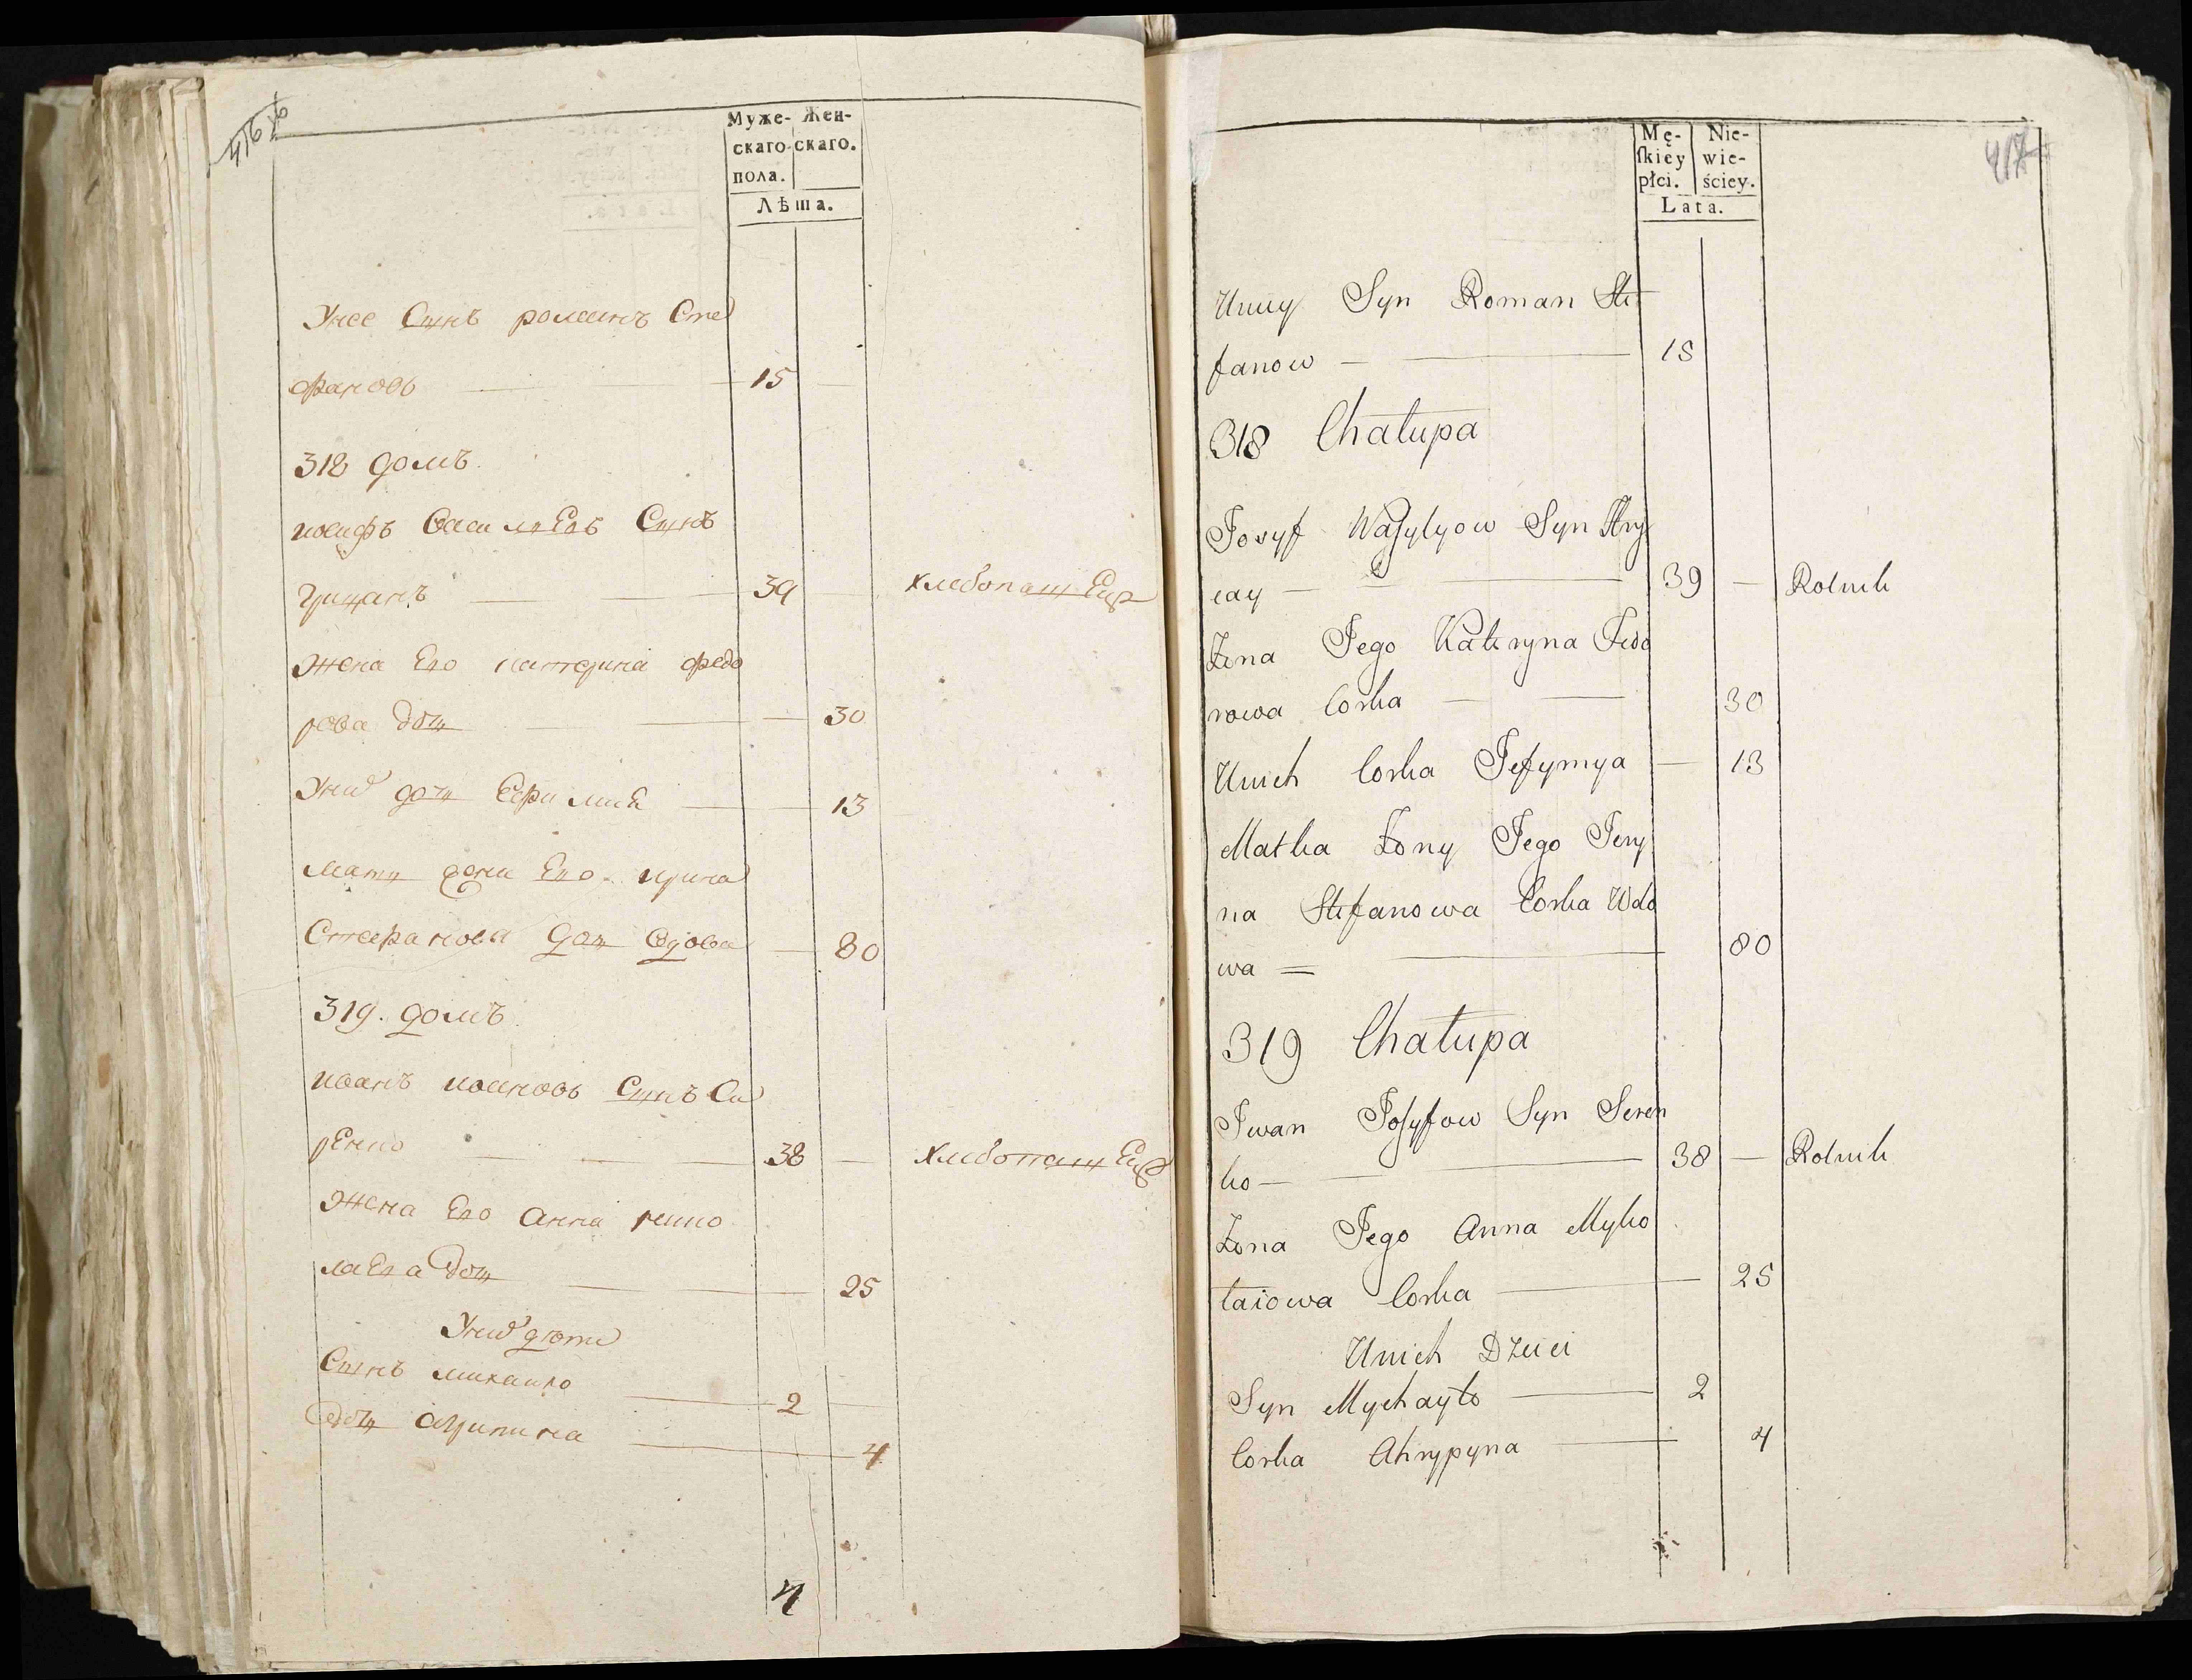 416
Муже- Жен-
скаго скаго.
пола.
Лѣта.
Унее Сынъ романъ Сте
фановъ — 15
318 домъ.
иосифъ Василевъ Сынъ
грицанъ — 39 хлебопашец
Жена Его катерина федо
рова дочь — 30
Уних дочь Ефимия — 13
мать жени Его ирина
Стефанова дочь вдова — 80
319. домъ.
иванъ иосиповъ Сынъ Се
ренко — 38 — хлебопашец
Жена Его анна нико
лаева дочь — 25
Уних дети
Сынъ михаило — 2 —
дочь агрипина — 4
4
417
Mę- Nie-
ſkiey wie-
płci. ściey.
Lata.
Uniey Syn Roman Ste
fanow — 15
318 Chałupa
Josyf Waſylyow Syn Hry
cay — 39 — Rolnik
Żona Jego Kateryna Fedo
rowa Corka — 30
Unich Corka Jefymya — 13
Matka Żony Jego Jery
na Stefanowa Corka Wdo
wa = — 80
319 Chałupa
Jwan Joſyfow Syn Seren
ko — 38 — Rolnik
Żona Jego Anna Myko
łaiowa Corka — 25
Unich Dzieci
Syn Mychayło — 2
Corka Ahrypyna — 4